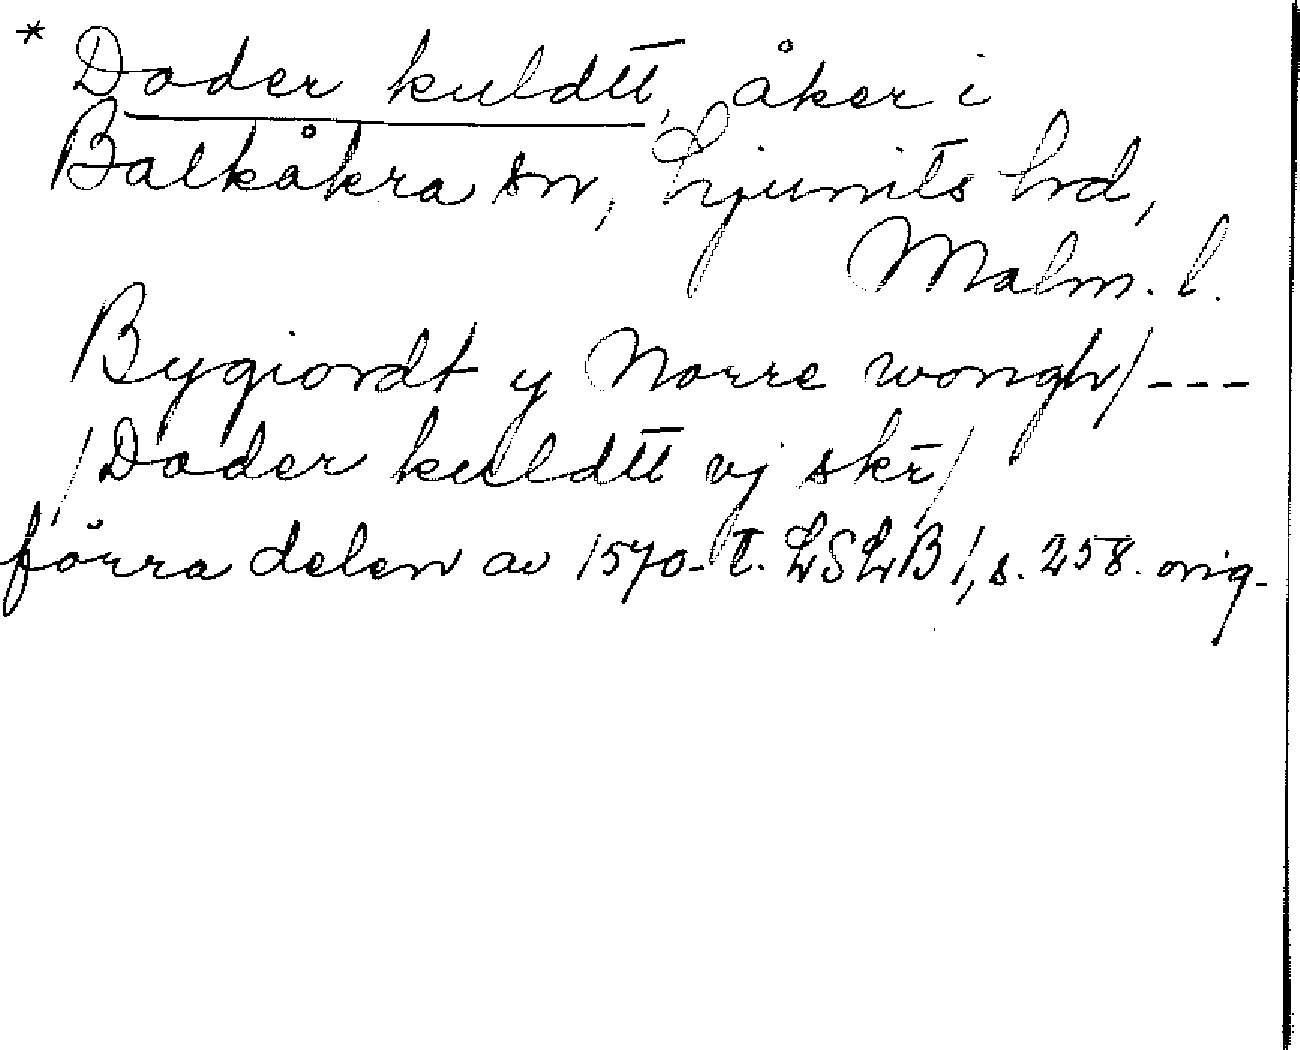 * Dader kuldtt, åker i
Balkåkra sn, Ljunits hd,
Malm. l.
Bygiordt y Norre wongh/---
/Dader kuldtt vj skr/
förra delen av 1570-t. LSLB 1, s. 258. orig.